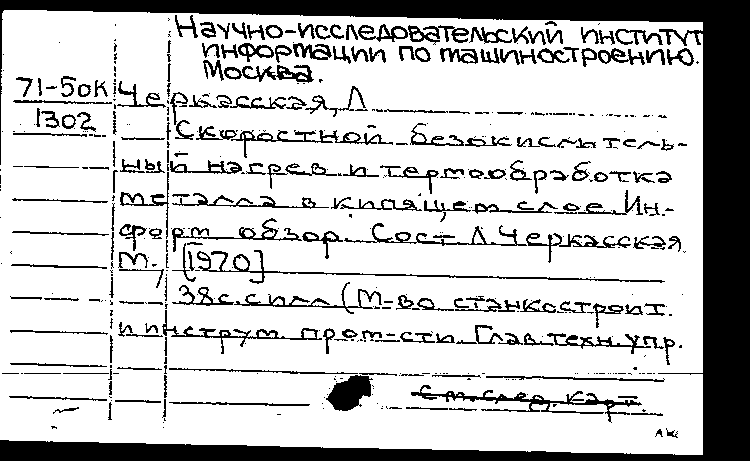 Научно-исследовательский институт
информации по машиностроению.
Москва.
71-5ок Черкасская, Л
1302 Скоростной безокислитель-
ный нагрев и термообработка
металла в кипящем слое. Ин-
форм обзор. Сост Л. Черкасская
М., [1970]
38с. с илл (М-во станкостроит.
и инструм пром-сти. Глав. техн. упр.
См. след. карт.